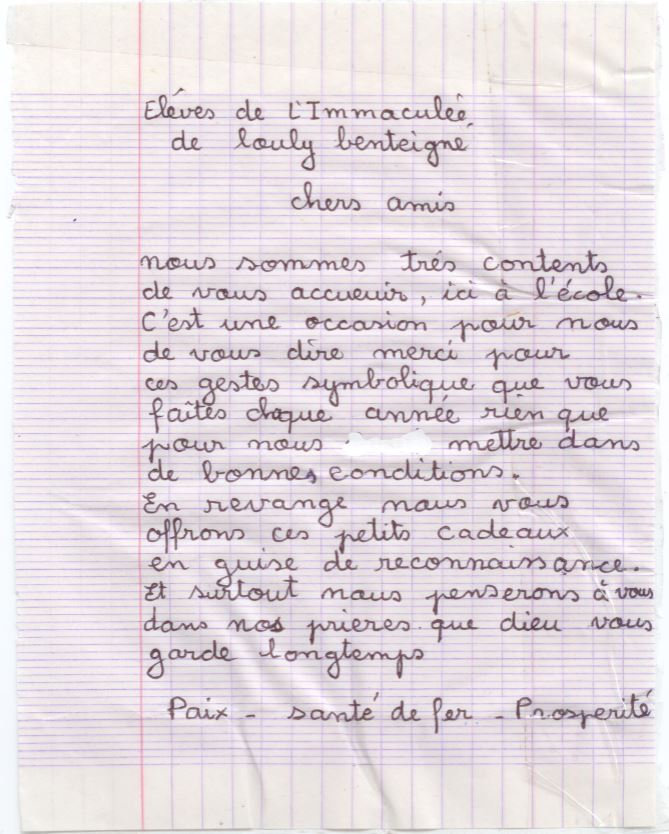 Eléves de L'Immaculéé
de louly benteigné
chers amis
nous sommes trés contents
de vous accueuir, ici à l'école.
C'est une occasion pour nous
de vous dire merci pour
ces gestes symbolique que vous
faîtes chaque année rien que
pour nous mettre dans
de bonnes conditions.
En revange nous vous
offrons ces petits cadeaux
en guise de reconnaissance.
Et surtout nous penserons à vous
dans nos prieres que dieu vous
garde longtemps
Paix - santé de fer - Prosperité